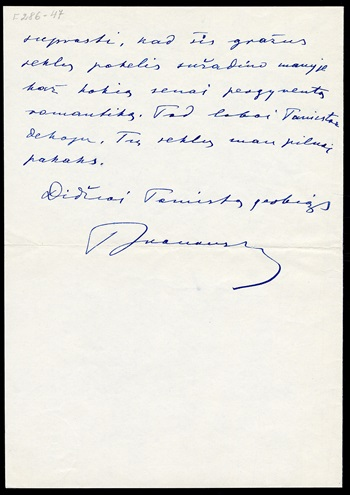 F286-47
suprasti, kad šis gražus
sėklų pokelis sužadino manyje
kaž kokią senai pergyventą
romantiką. Tad labai Tamistai
dėkoju. Tų sėklų man pilnai
pakaks.
Didžiai Tamistą gerbiąs
TIvanausk